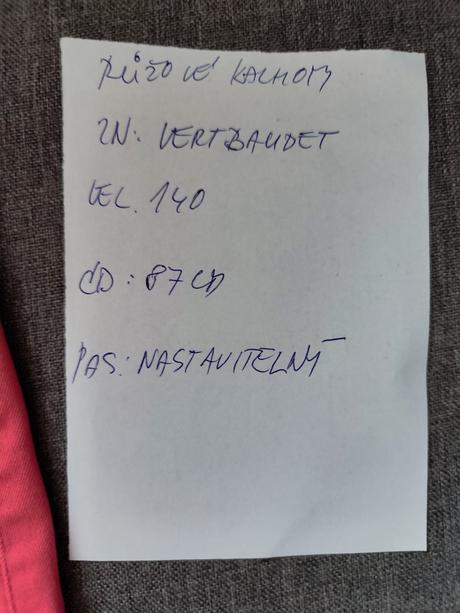 RŮŽOVÉ KALHOTY
ZN: VERTBAUDET
VEL. 140
CD: 87CD
PAS: NASTAVITELNÝ